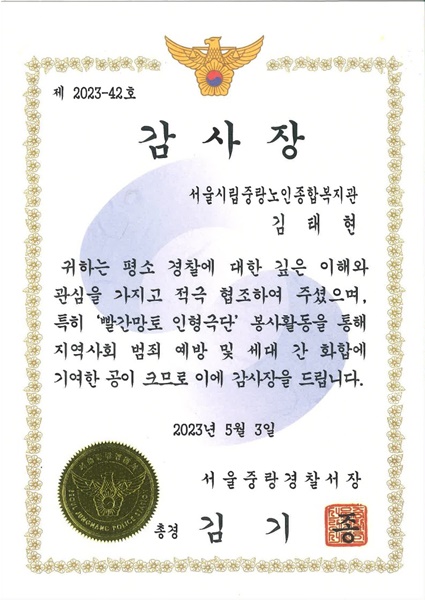 제 2023-42호
감 사 장
서울시립중랑노인종합복지관
김 태 현
귀하는 평소 경찰에 대한 깊은 이해와
관심을 가지고 적극 협조하여 주셨으며,
특히 '빨간망토 인형극단' 봉사활동을 통해
지역사회 범죄 예방 및 세대 간 화합에
기여한 공이 크므로 이에 감사장을 드립니다.
2023년 5월 3일
서울중랑경찰서장
총경 김 기 종